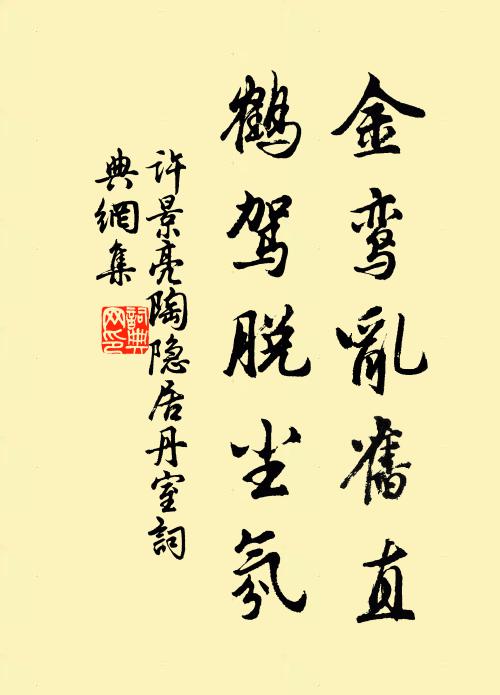 金鸾亂舊直
鹤驾脱尘氛
许景亮陶隐居丹室詞
典網集
詞典
网印